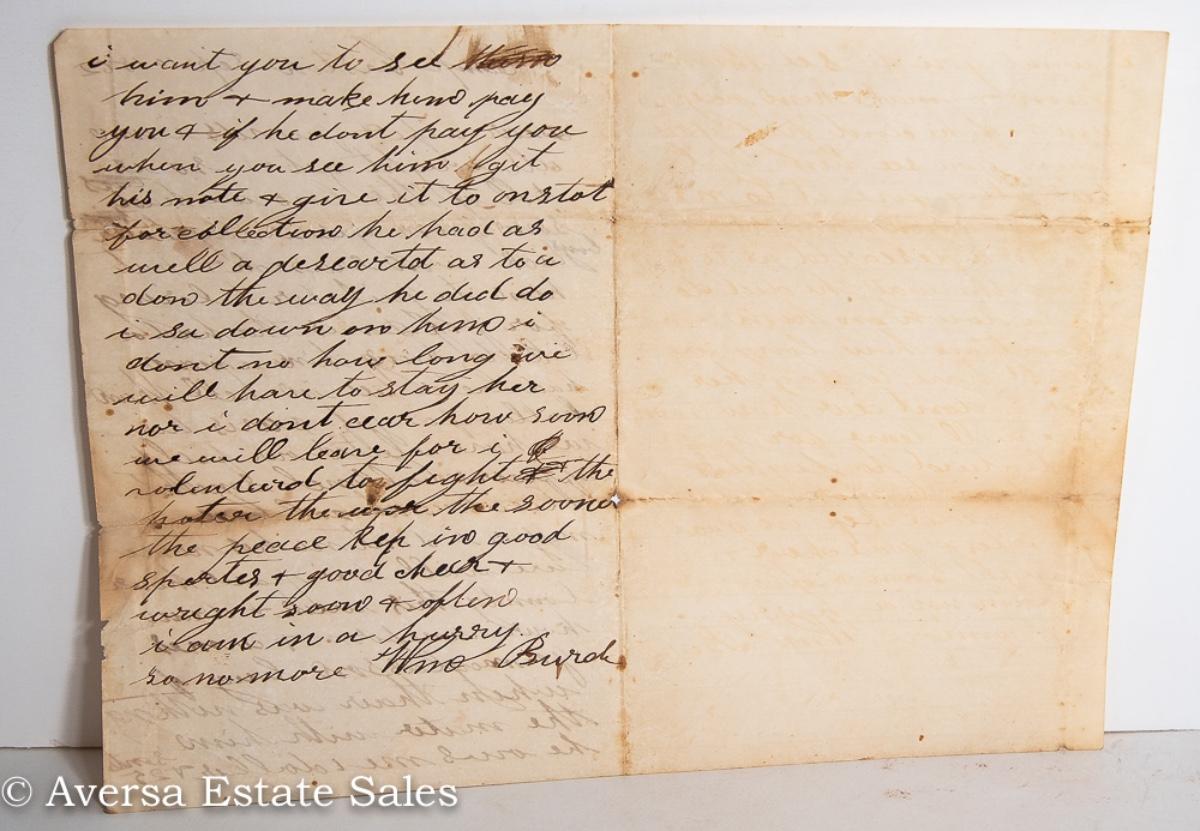 i want you to see
him + make him pay
you + if he dont pay you
when you see him git
his note + give it to onstot
for collection he had as
well a deseartd as to a
don the way he did do
i sa down on him i
dont no how long we
will have to stay her
nor i dont cear how soon
we will leave for i
volenterd to fight the
hoter the wor the sooner
the peace kep in good
sperter + good cheer +
wright soon + often
i am in a hurry
so no more Wm Burd
© Aversa Estate Sales